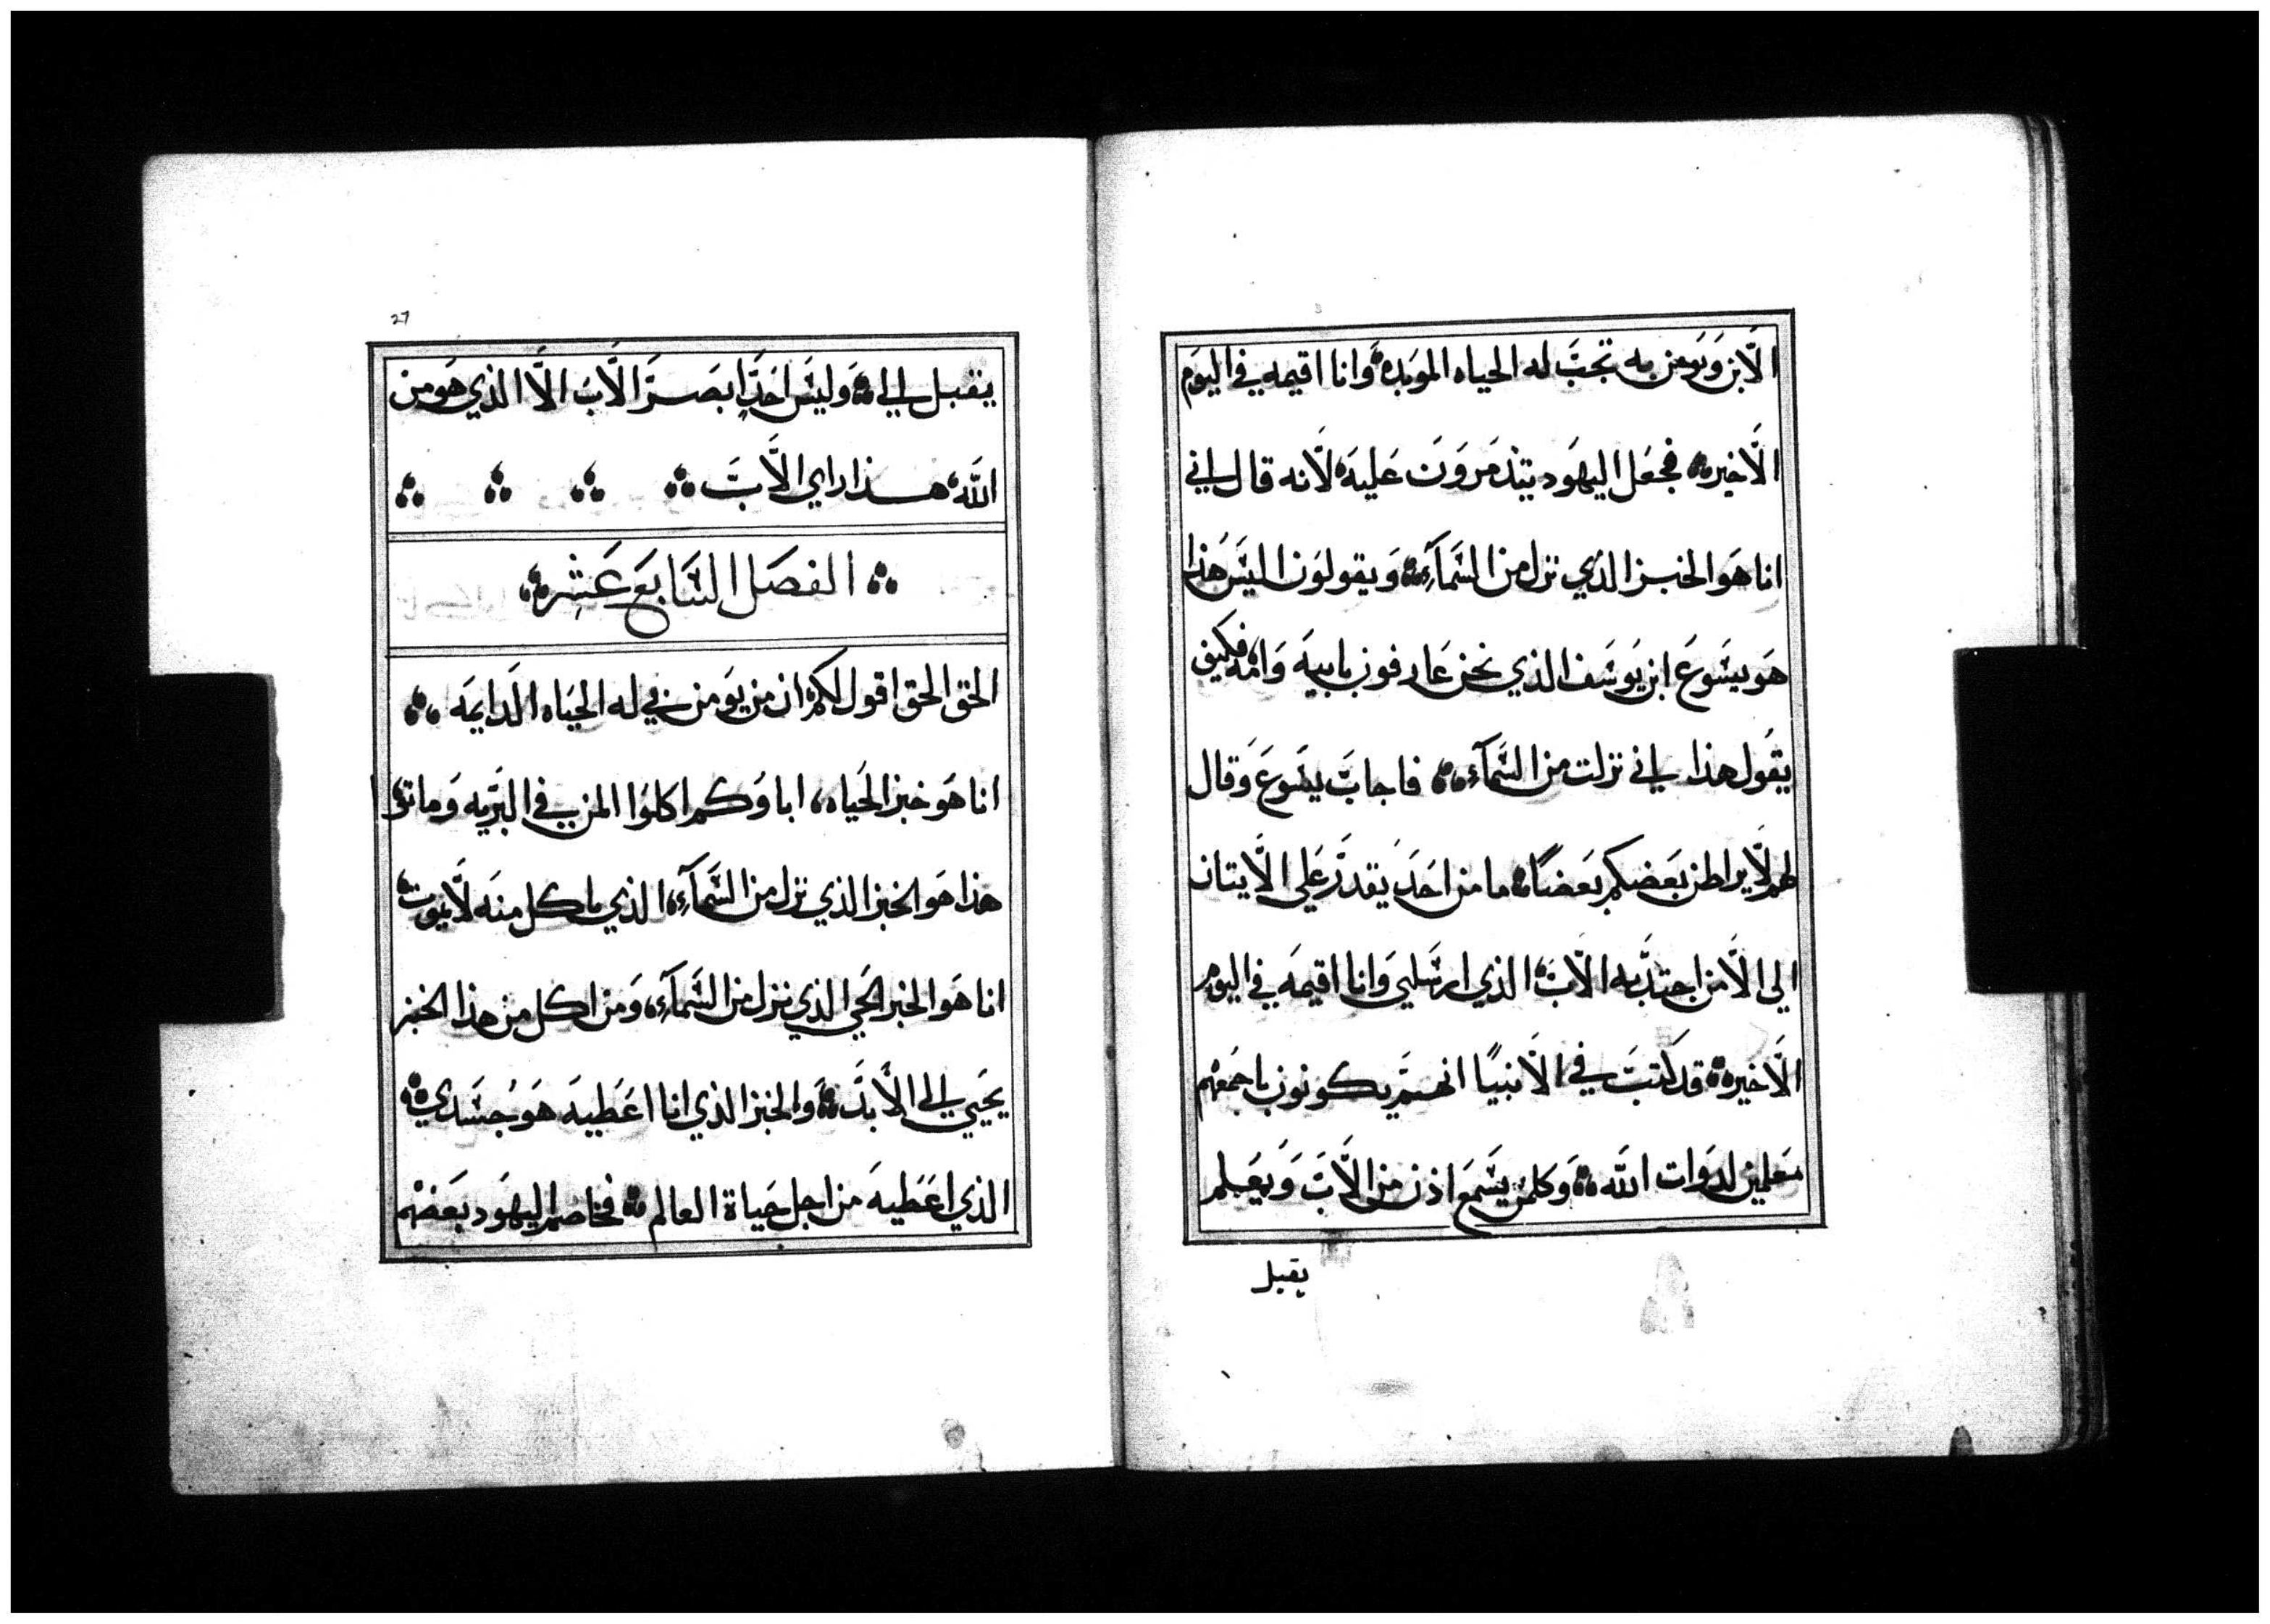 الَابن وَيَومن به تجبَ له الحياه الموَبده وانا اقيمه في اليَوم
الَاخيره فجعَل اليهَود يتذمرَوَن عَليهَ لَانه قال اني
انا هَو الخبز الذي نزل من السَمآء وَيقولوَن اليسَ هذا
هَو يسَوعَ ابن يَوسَف الذي نحن عَارفون بابيهَ وَامه فكيف
يقَول هذا اني نزلت من السَمآء فاجابَ يسَوعَ وَقال
لهم لَا يراطن بعَضكم بعَضًا ما من احَدَ يقدرَ عَلي الَايتان
الي الَا من اجتدَبه الَابَ الذي ارسَلني وَانا اقيمهَ في اليوم
الَاخيره قد كتبَ في الَانبيًا انهم يكونون باجمَعهم
معَلمين لدوَات اللَه وَكلمن يسَمعَ اذن من الَابَ وَيعَلم
يقبل
27
يقبل الي وَليسَ احَدٍ ابصرَ الَابَ الَا الذي هَو من
اللَه هذا راي الَابَ
الفصَل السَابعَ عَشره
الحق الحق اقول لكم ان من يوَمن بي له الحيَاه الدَايمَه
انا هَو خبز الحَياه اباوَكم اكلوا المن في البرَيه وَماتوا
هذا هَو الخبز الذي نزل من السَمآء الذي ياكل منهَ لَا يموت
انا هَو الخبز الحَي الذي نزل من السَمآء وَمن اكل من هذا الخبز
يحَيي الي الَابدَ وَالخبز الذي انا اعَطيهَ هَو جسَدي
الذي اعَطيهَ من اجل حَياة العالم فخاصم اليهَود بعَضهم